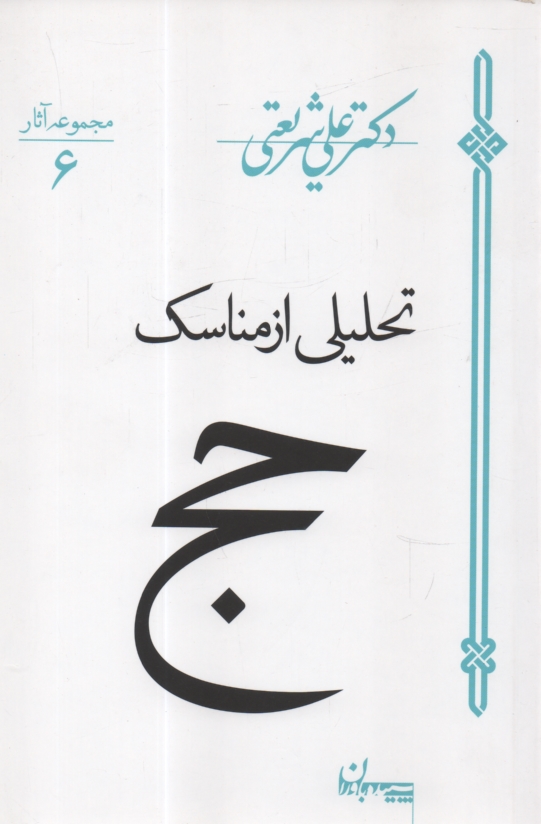 دکتر علی شریعتی
مجموعه آثار
۶
تحلیلی از مناسک
حج
سپیده باوران